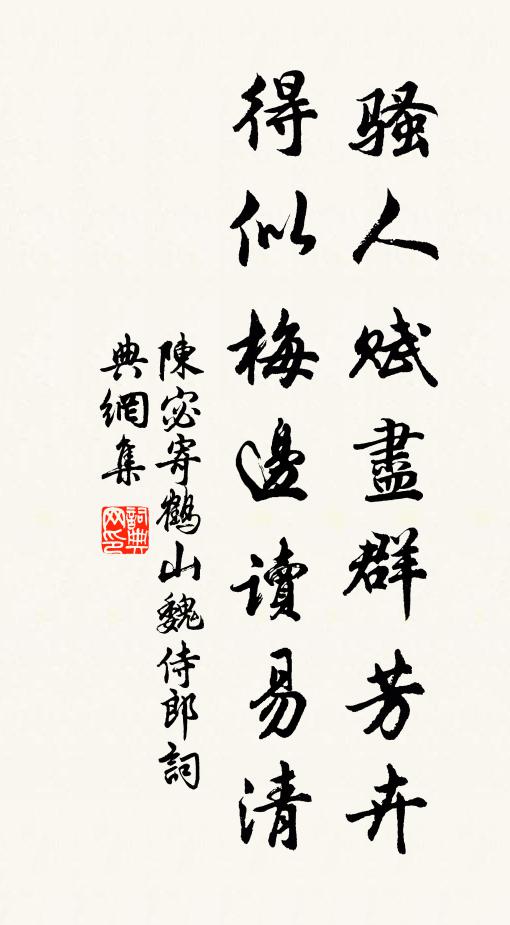 騷人賦盡群芳卉
得似梅邊讀易清
陳宓寄鶴山魏侍郎詞
典網集
詞典网印